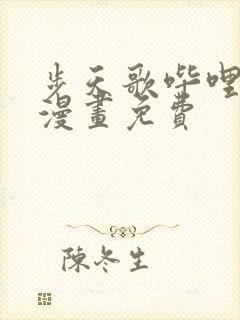 步天歌哔哩
漫畫免費
陳冬生